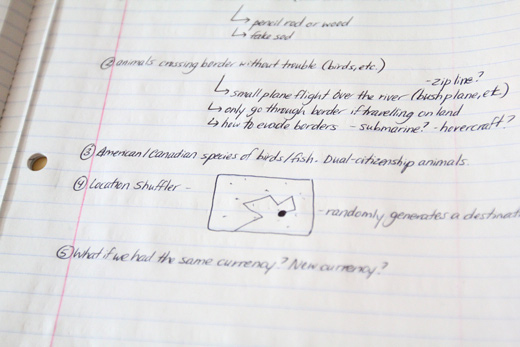 ↳ pencil rod or wood
↳ fake sod
② animals crossing border without trouble (birds, etc.)
- zip line?
↳ small plane flight over the river (bushplane, etc)
↳ only go through border if travelling on land
↳ how to evade borders - submarine? - hovercraft?
③ American/Canadian species of birds/fish. Dual-citizenship animals.
④ Location Shuffler -
- randomly generates a destinati
⑤ What if we had the same currency? New currency?